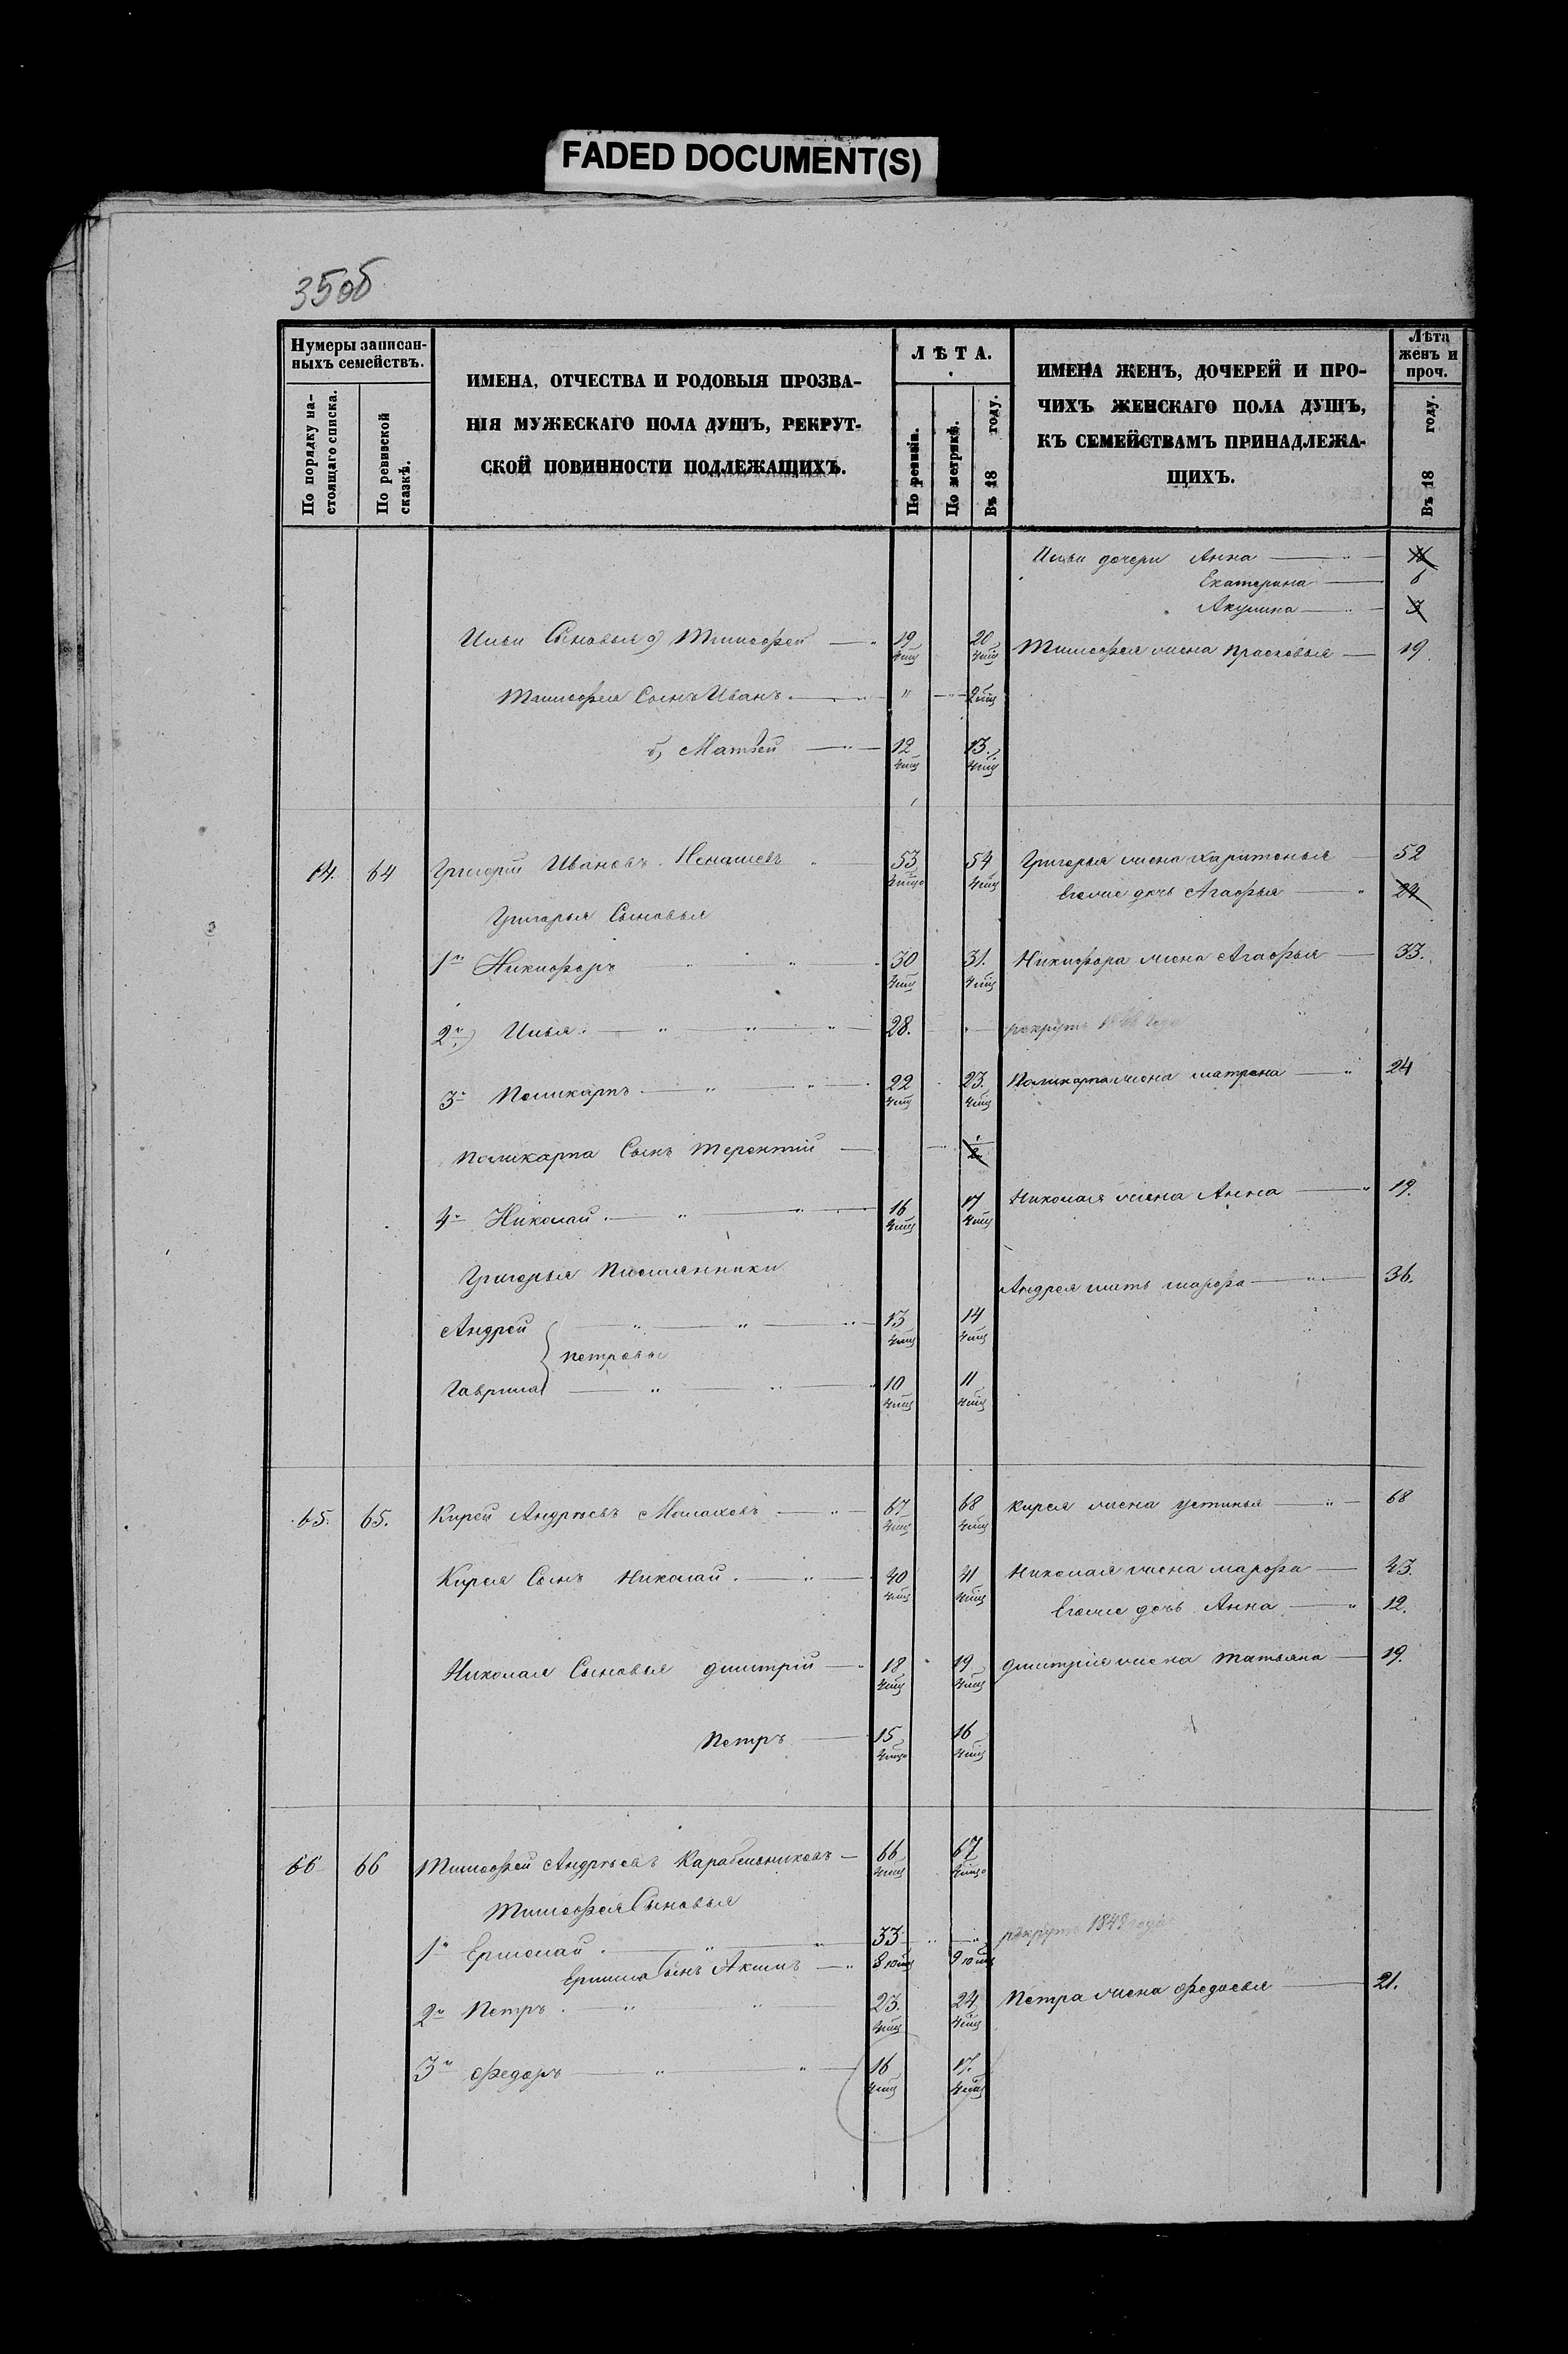 FADED DOCUMENT(S)
35об
Нумеры записан-
ныхъ семействъ.
По порядку на-
стоящаго списка.
По ревизской
сказкѣ.
ИМЕНА, ОТЧЕСТВА И РОДОВЫЯ ПРОЗВА-
НІЯ МУЖЕСКАГО ПОЛА ДУШЪ, РЕКРУТ-
СКОЙ ПОВИННОСТИ ПОДЛЕЖАЩИХЪ.
ЛѢТА.
По ревизіи.
По метрикѣ.
Въ 18 году.
ИМЕНА ЖЕНЪ, ДОЧЕРЕЙ И ПРО-
ЧИХЪ ЖЕНСКАГО ПОЛА ДУШЪ,
КЪ СЕМЕЙСТВАМЪ ПРИНАДЛЕЖА-
ЩИХЪ.
Лѣта
женъ и
проч.
Въ 18 году.
Ильи дочери Анна
Екатерина 6
Акулина 3
Ильи Сыновья а) Тимофей 19 20 Тимофея жена Прасковья 19
4мц 4мц
Тимофея Сынъ Иванъ " 2мц
б) Матвей 12 13.
4мц 4мц
64. 64 Григорій Ивановъ Ненашевъ 53 54 Григорья жена Харитонья 52
4мцо 4мц Егоже дочь Агафья 24
Григорья Сыновья
1й Никифоръ 30 31. Никифора жена Агафья 33.
4мц 4мц
2й) Илья 28. рекрутъ года
3й Поликарпъ 22 23. Поликарпа жена матрена 24
4мц 4мц
Поликарпа Сынъ Терентій
4й Николай 16 17 Николая жена Анна 19.
4мц 4мц
Григорья Племянники
Андрея мать марфа 36.
Андрей 13 14
4мц 4мц
Петровы
Гаврила 10 11
4мц 4мц
65. 65. Кирей Андреевъ Малаховъ 67 68 Кирея жена устинья 68
4мц 4мц
Кирея Сынъ Николай 40 41 Николая жена марфа 43.
4мц 4мц
Егоже дочь Анна 12.
Николая Сыновья дмитрій 18 19 дмитрія жена Татьяна 19.
4мц 4мц
Петръ 15 16
4мцо 4мц
66 66 Тимофей Андреевъ Карабельниковъ 66 67
4мц 4мцо
Тимофея Сыновья
1й Ермолай 33 рекрутъ 1849 года
Ермила Сынъ Акимъ 8 10мц 9 10мц
2й Петръ 23. 24 Петра жена Федосья 21.
4мц 4мц
3й Федоръ 16 17.
4мц 4мц